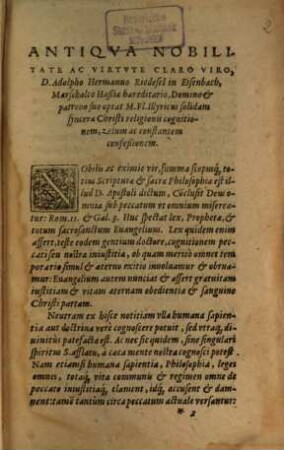 ANTIQVA NOBILI-
TATE AC VIRTVTE CLARO VIRO,
D. Adolpho Hermanno Riedesel in Eisenbach,
Marschalco Hassiæ hæreditario, Domino &
patrono suo optat M. Fl. Illyricus solidam
synceræ Christi religionis cognitio-
nem, zelum ac constantem
confessionem.
NObilis ac eximie vir, summa scopusq́, to-
tius Scripturæ & sacræ Philosophiæ est il-
lud D. Apostoli dictum, Cōclusit Deus om-
nia sub peccatum vt omnium miserea-
tur: Rom. 11. & Gal. 3. Huc spectat lex, Prophetæ, &
totum sacrosanctum Euangelium. Lex quidem enim
affert, teste eodem gentium doctore, cognitionem pec-
cati seu nostræ iniustitiæ, ob quam meritò omnes tem-
poraria simul & æterno exitio inuoluamur & obrua-
mur: Euangelium autem nunciat & affert gratuitam
iustitiam & vitam æternam obedientia & sanguine
Christi partam.
Neutram ex hisce notitiam vlla humana sapien-
tia aut doctrina verè cognoscere potuit, sed vtraq́, di-
uinitus patefacta est. Ac nec sic quidem, sine singulari
spiritus S. afflatu, à cæca mente nostra cognosci potest.
Nam etiamsi humana sapientia, Philosophia, leges
omnes, totaq́, vita communis & regimen omne de
peccato iniustitiaq́, clament, idq́, accusent & dam-
nent: tamē tantùm circa peccatum actuale versantur:
* 2